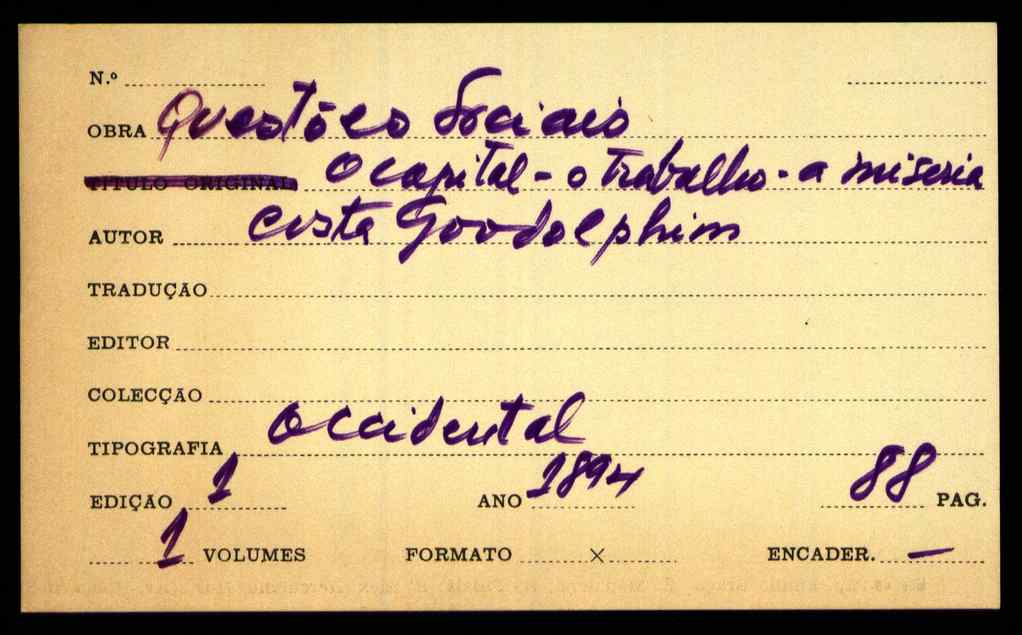 N.º
OBRA Questões Sociais
TÍTULO ORIGINAL O capital - o trabalho - a miseria
AUTOR Costa Goodolphim
TRADUÇÃO
EDITOR
COLECÇÃO
TIPOGRAFIA Occidental
EDIÇÃO 1 ANO 1894 88 PAG.
1 VOLUMES FORMATO × ENCADER. —